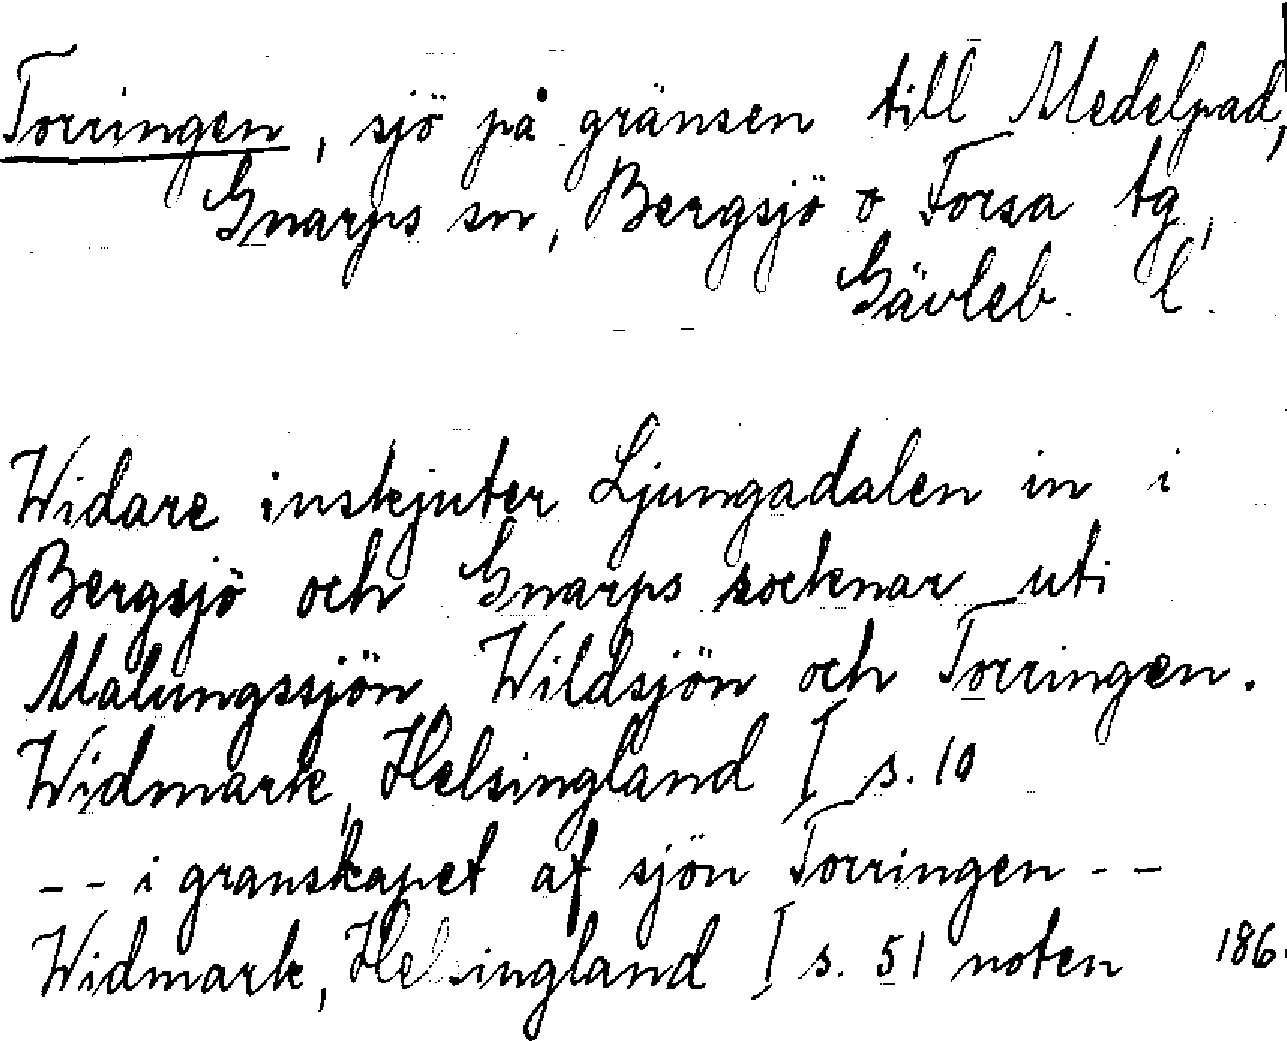 Torringen, sjö på gränsen till Medelpad,
Gnarps sn, Bergsjö o Forsa tg,
Gävleb. l.
Widare inskjuter Ljungadalen in i
Bergsjö och Gnarps socknar uti
Malungssjön, Wildsjön och Torringen.
Widmark, Helsingland I s. 10
-- i granskapet af sjön Torringen --
Widmark, Helsingland I s. 51 noten 186